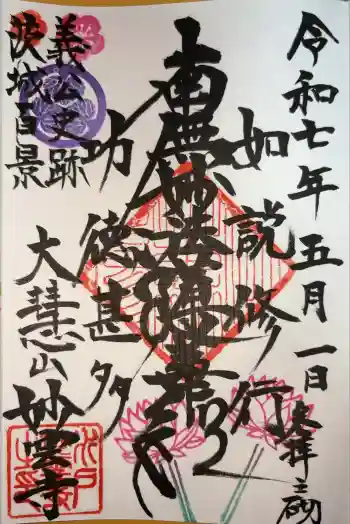 令和七年五月一日
如説修行
南無妙法蓮華経
功徳甚多
義公史跡
茨城百景
大慧山
妙雲寺